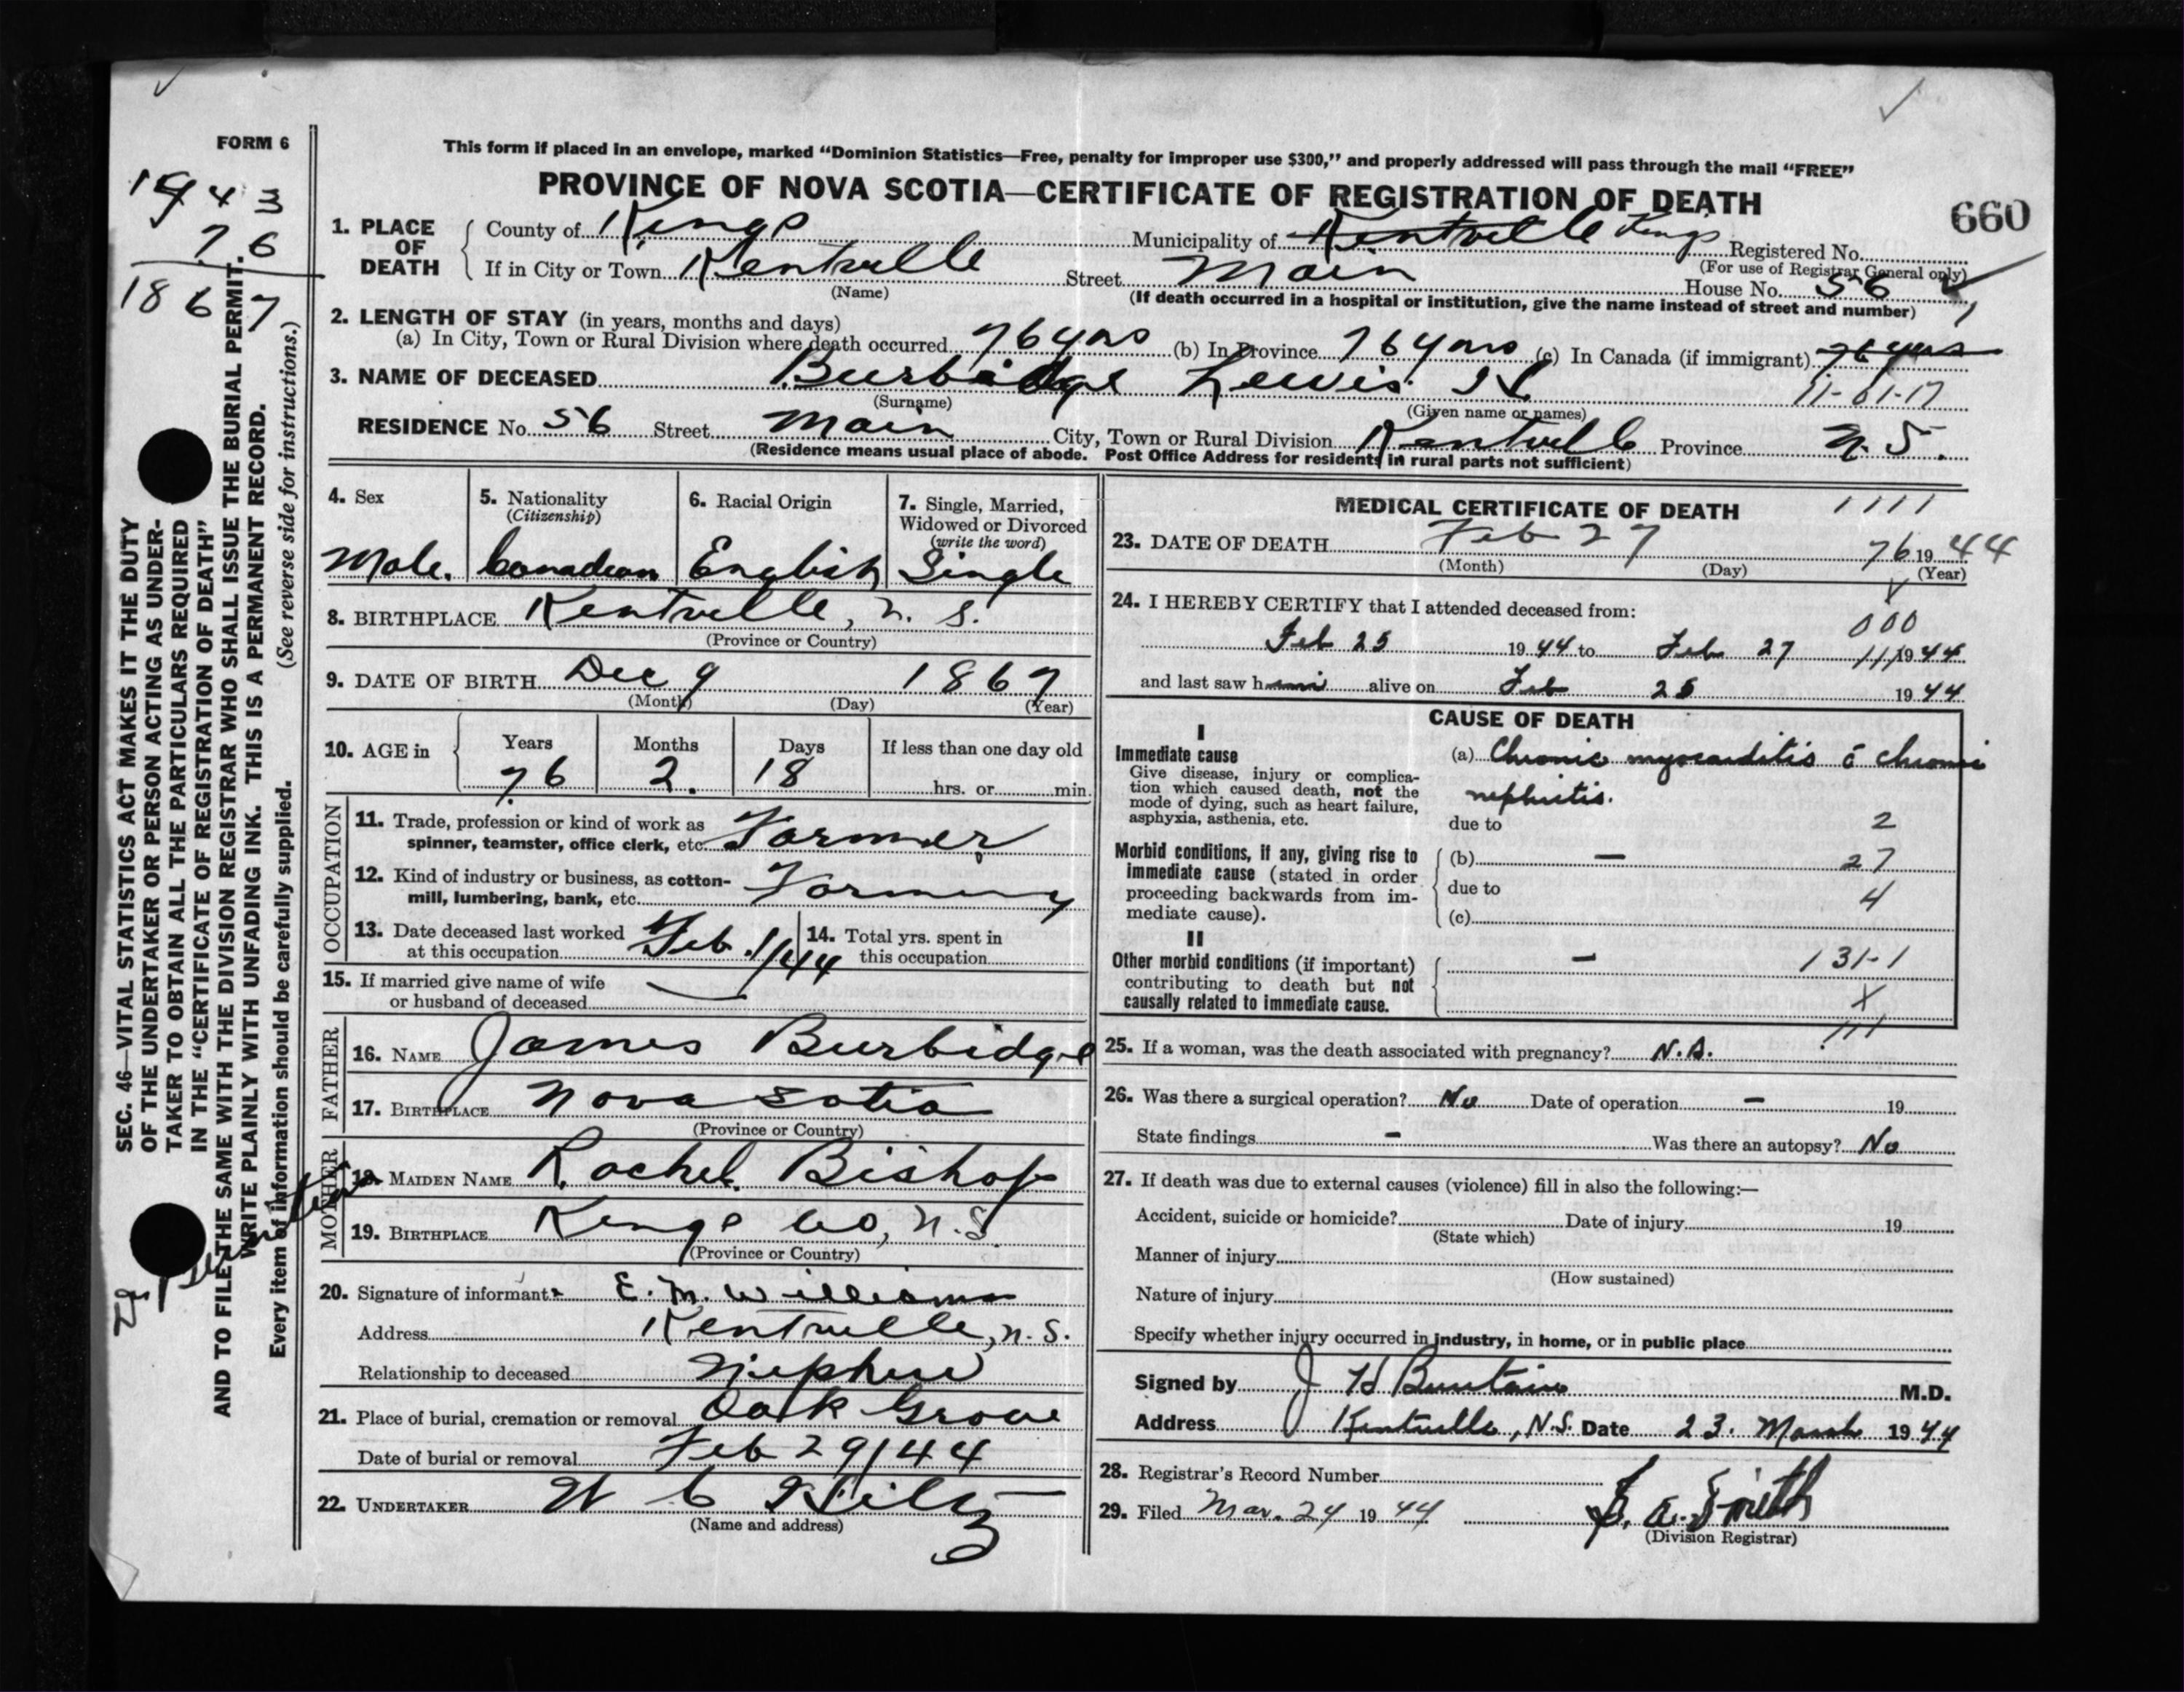 FORM 6
This form if placed in an envelope, marked “Dominion Statistics—Free, penalty for improper use $300,” and properly addressed will pass through the mail “FREE”
PROVINCE OF NOVA SCOTIA—CERTIFICATE OF REGISTRATION OF DEATH
660
1943
76
1867
1. PLACE OF DEATH
County of Kings Municipality of Kentville Kings Registered No.
(For use of Registrar General only)
If in City or Town Kentville Street Main House No. 56
(Name) (If death occurred in a hospital or institution, give the name instead of street and number)
2. LENGTH OF STAY (in years, months and days)
(a) In City, Town or Rural Division where death occurred 76 yrs (b) In Province 76 yrs (c) In Canada (if immigrant) 76 yrs
3. NAME OF DECEASED Burbidge Lewis H 11-01-17
(Surname) (Given name or names)
RESIDENCE No. 56 Street Main City, Town or Rural Division Kentville Province N.S.
(Residence means usual place of abode. Post Office Address for residents in rural parts not sufficient)
4. Sex
Male.
5. Nationality
(Citizenship)
Canadian
6. Racial Origin
English
7. Single, Married,
Widowed or Divorced
(write the word)
Single
8. BIRTHPLACE Kentville, N. S.
(Province or Country)
9. DATE OF BIRTH Dec 9 1867
(Month) (Day) (Year)
10. AGE in
Years Months Days If less than one day old
76 2. 18 hrs. or min.
OCCUPATION
11. Trade, profession or kind of work as
spinner, teamster, office clerk, etc. Farmer
12. Kind of industry or business, as cotton-
mill, lumbering, bank, etc. Farming
13. Date deceased last worked
at this occupation Feb 1/44
14. Total yrs. spent in
this occupation
15. If married give name of wife
or husband of deceased
FATHER
16. NAME James Burbidge
17. BIRTHPLACE Nova Scotia
(Province or Country)
MOTHER
18. MAIDEN NAME Rachel Bishop
19. BIRTHPLACE Kings Co, N.S.
(Province or Country)
20. Signature of informant E. M. Williams
Address Kentville, N.S.
Relationship to deceased Nephew
21. Place of burial, cremation or removal Oak Grove
Date of burial or removal Feb 29/44
22. UNDERTAKER W C Hiltz
(Name and address)
3
MEDICAL CERTIFICATE OF DEATH 1111
23. DATE OF DEATH Feb 27 76 1944
(Month) (Day) (Year)
24. I HEREBY CERTIFY that I attended deceased from:
000
Feb 25 1944 to Feb 27 111 1944
and last saw him alive on Feb 25 1944
CAUSE OF DEATH
I
Immediate cause
Give disease, injury or complica-
tion which caused death, not the
mode of dying, such as heart failure,
asphyxia, asthenia, etc.
(a) Chronic myocarditis c̄ chronic
nephritis.
due to 2
Morbid conditions, if any, giving rise to
immediate cause (stated in order
proceeding backwards from im-
mediate cause).
(b) — 27
due to 4
(c)
II
Other morbid conditions (if important)
contributing to death but not
causally related to immediate cause.
— 131-1
X
111
25. If a woman, was the death associated with pregnancy? N.A.
26. Was there a surgical operation? No Date of operation — 19
State findings - Was there an autopsy? No
27. If death was due to external causes (violence) fill in also the following:—
Accident, suicide or homicide? Date of injury 19
(State which)
Manner of injury
(How sustained)
Nature of injury
Specify whether injury occurred in industry, in home, or in public place
Signed by J H Buntain M.D.
Address Kentville, N.S. Date 23. March 1944
28. Registrar's Record Number
29. Filed Mar. 24 1944 Smith
(Division Registrar)
SEC. 46—VITAL STATISTICS ACT MAKES IT THE DUTY
OF THE UNDERTAKER OR PERSON ACTING AS UNDER-
TAKER TO OBTAIN ALL THE PARTICULARS REQUIRED
IN THE “CERTIFICATE OF REGISTRATION OF DEATH”
AND TO FILE THE SAME WITH THE DIVISION REGISTRAR WHO SHALL ISSUE THE BURIAL PERMIT.
WRITE PLAINLY WITH UNFADING INK. THIS IS A PERMANENT RECORD.
Every item of information should be carefully supplied. (See reverse side for instructions.)